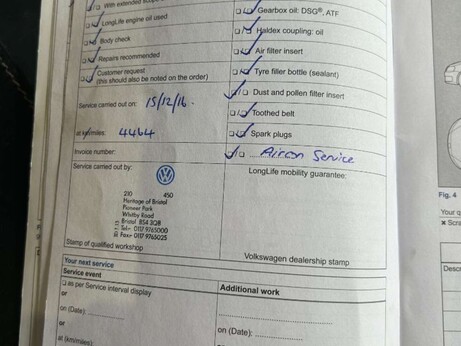 With extended scope
LongLife engine oil used
Body check
Repairs recommended
Customer request
(this should also be noted on the order)
Service carried out on: 15/12/16.
at km/miles: 4464
Invoice number:
Service carried out by:
210 450
Heritage of Bristol
Pioneer Park
Whitby Road
Bristol BS4 3QB
Tel:- 0117 9765000
Fax:- 0117 9765025
Stamp of qualified workshop
Gearbox oil: DSG®, ATF
Haldex coupling: oil
Air filter insert
Tyre filler bottle (sealant)
Dust and pollen filter insert
Toothed belt
Spark plugs
Aircon Service
LongLife mobility guarantee:
Volkswagen dealership stamp
Your next service
Service event
as per Service interval display
or
on (Date):
or
at (km/miles):
Additional work
on (Date):
or
Fig. 4
Your
Scra
Descr